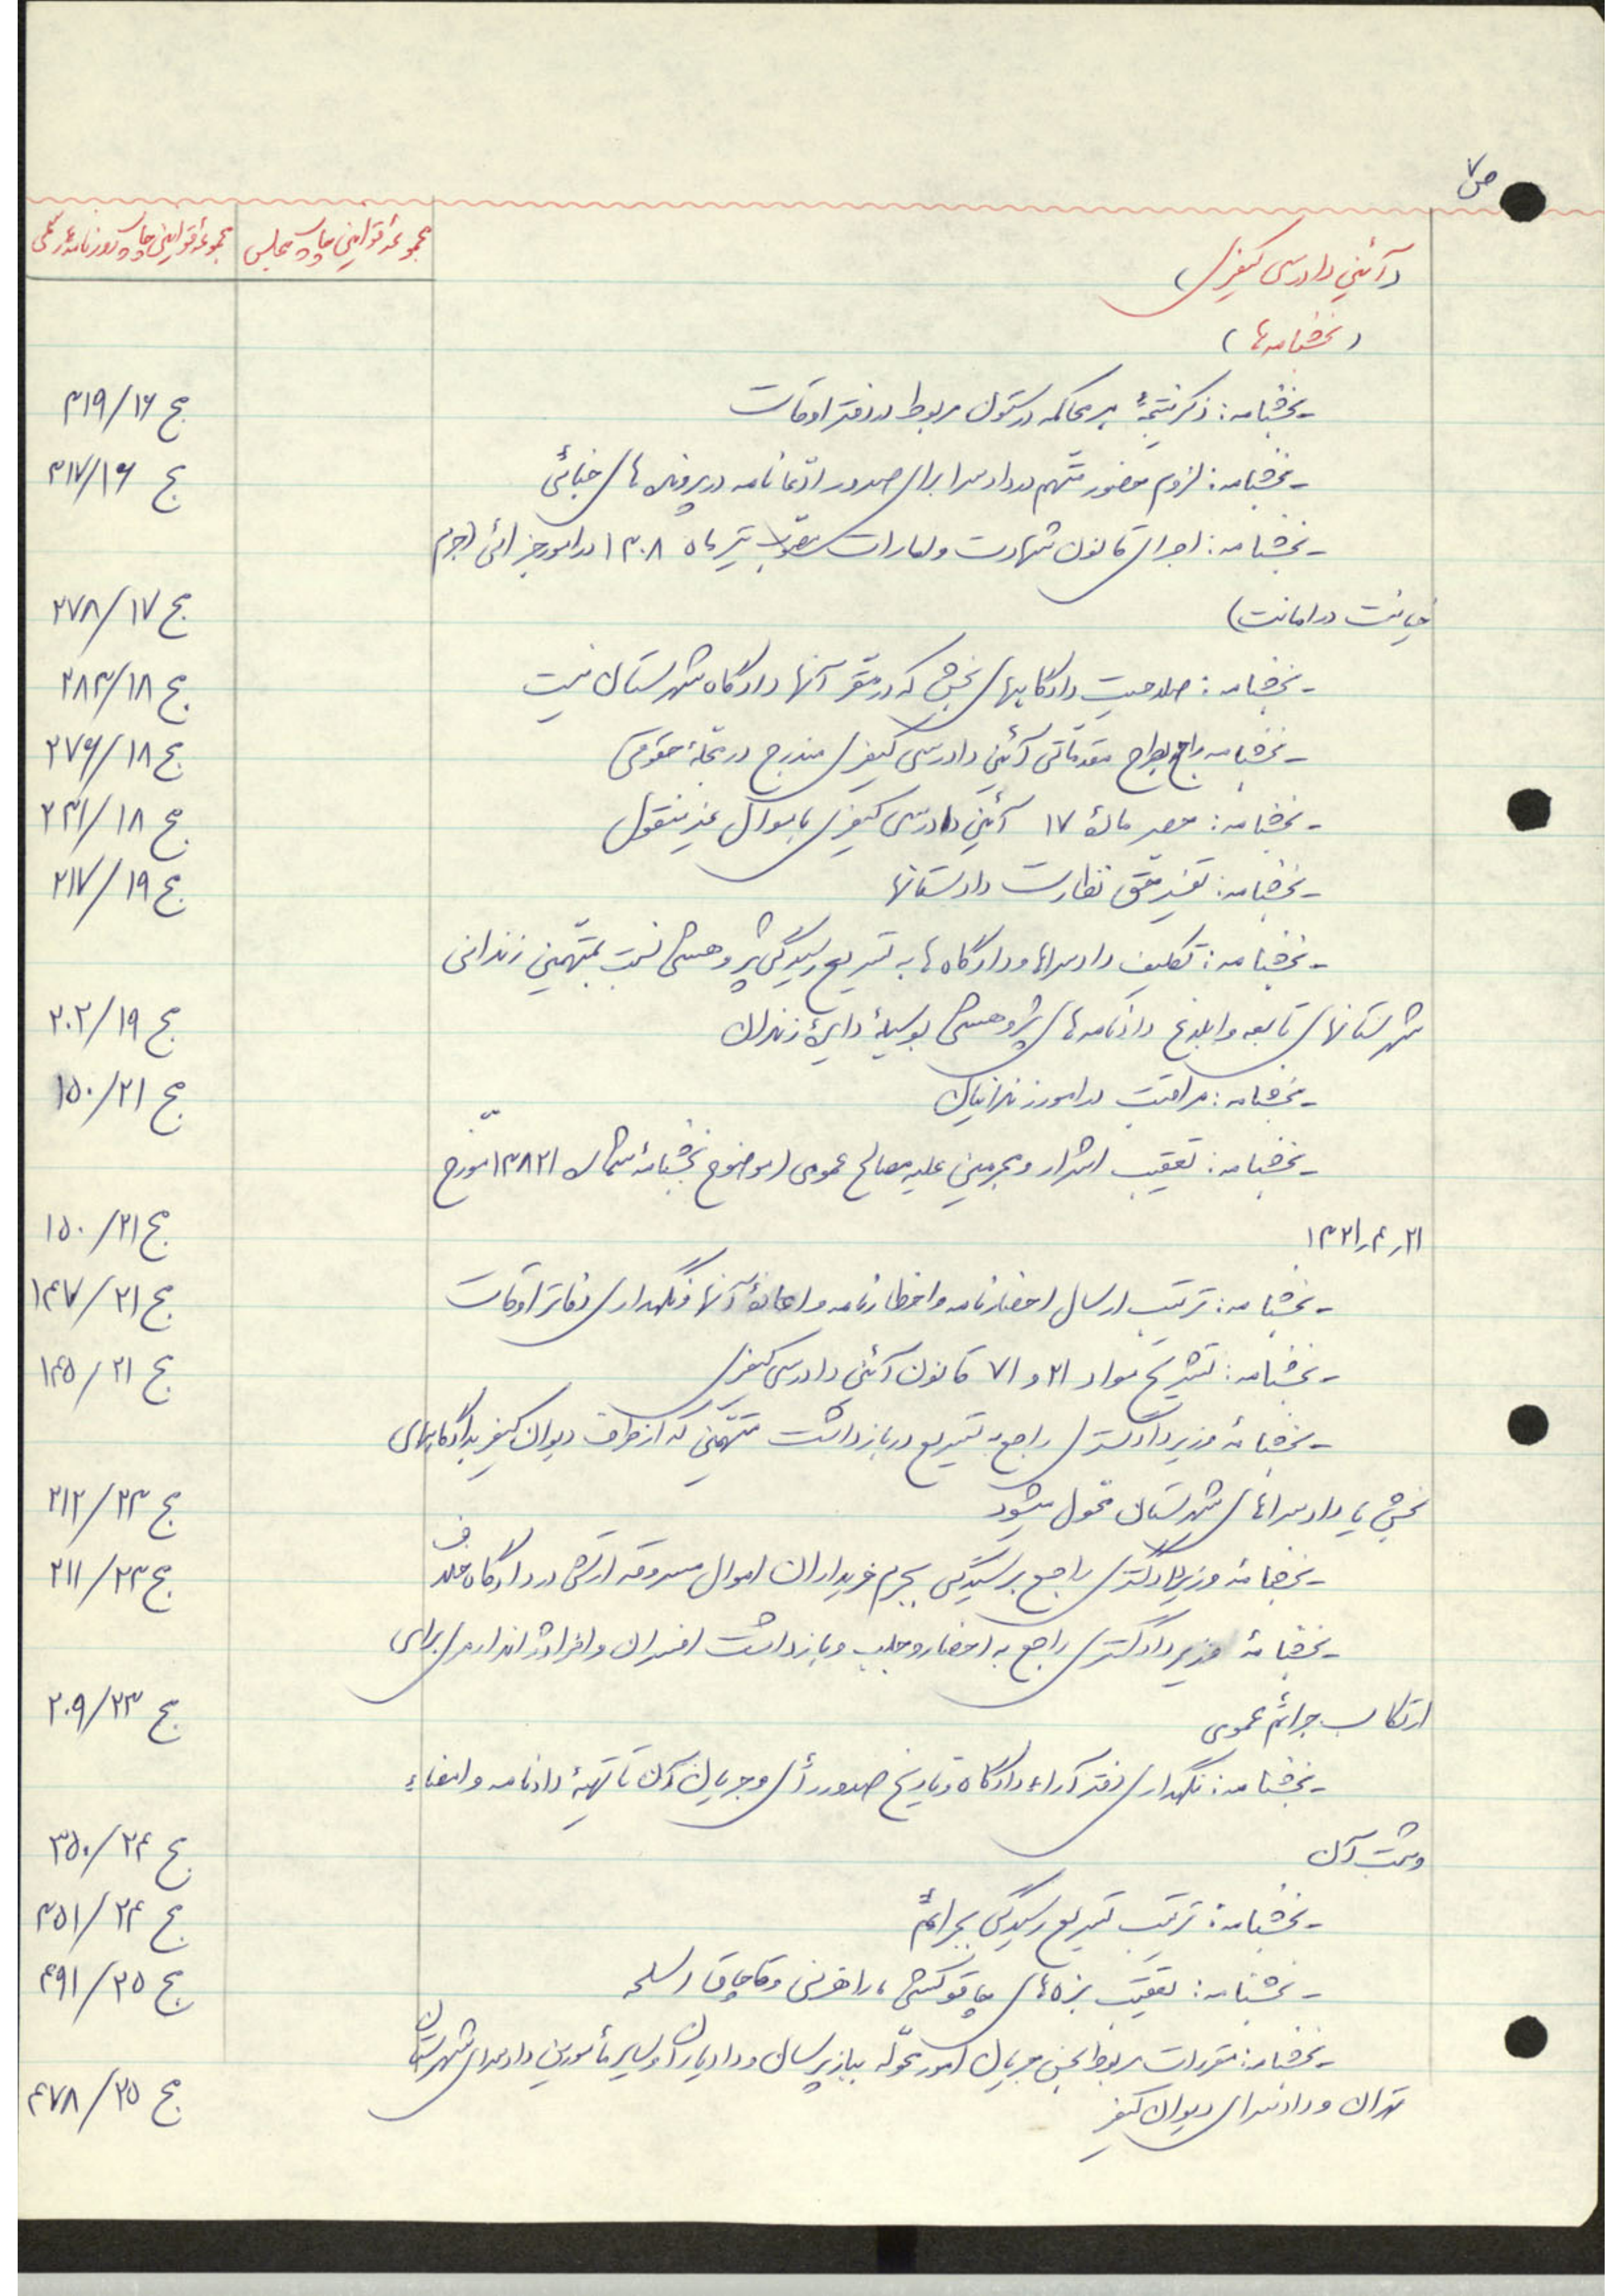 ص ۷
مجموعه قوانین چاپ مجلس
مجموعه قوانین چاپ روزنامه رسمی
(آئین دادرسی کیفری)
(بخشنامه‌ها)
- بخشنامه: ذکر نتیجهٔ هر محاکمه در ستون مربوط در دفتر اوقات ج ۱۶/۳۱۹
- بخشنامه: لزوم حضور متّهم در دادسرا برای صدور ادّعانامه در پرونده‌های جنائی ج ۱۶/۳۱۷
- بخشنامه: اجرای قانون شهادت و امارات مصوّب تیر ماه ۱۳۰۸ در امور جزائی (جرم
خیانت در امانت) ج ۱۷/۲۷۸
- بخشنامه: صلاحیت دادگاههای بخش که در مقرّ آنها دادگاه شهرستان نیست ج ۱۸/۲۸۳
- بخشنامه راجع بطرح مقدماتی آئین دادرسی کیفری مندرج در مجلّهٔ حقوقی ج ۱۸/۲۷۶
- بخشنامه: حصر مادّهٔ ۱۷ آئین دادرسی کیفری باموال غیر منقول ج ۱۸/۲۳۱
- بخشنامه: تفسیر حق نظارت دادستانها ج ۱۹/۲۱۷
- بخشنامه: تکلیف دادسراها و دادگاه‌ها به تسریع رسیدگی پژوهشی نسبت بمتّهمین زندانی
شهرستانهای تابعه و ابلاغ دادنامه‌های پژوهشی بوسیلهٔ دایرهٔ زندان ج ۱۹/۲۰۲
- بخشنامه: مراقبت در امور زندانیان ج ۲۱/۱۵۰
- بخشنامه: تعقیب اشرار و مجرمین علیه مصالح عمومی (موضوع بخشنامهٔ شماره ۱۳۸۲۱ مورّخ
۲۱ر۴ر۱۳۲۱ ج ۲۱/۱۵۰
- بخشنامه: ترتیب ارسال احضارنامه و اخطارنامه و اعادهٔ آنها و نگهداری دفاتر اوقات ج ۲۱/۱۴۷
- بخشنامه: تشریح مواد ۲۱ و ۷۱ قانون آئین دادرسی کیفری ج ۲۱/۱۴۵
- بخشنامهٔ وزیر دادگستری راجع به تسریع در بازداشت متّهمینی که از طرف دیوان کیفر بدادگاههای
بخش یا دادسراهای شهرستان محوّل میشود ج ۲۳/۲۱۲
- بخشنامهٔ وزیر دادگستری راجع برسیدگی بجرم خریداران اموال مسروقه ارتش در دادگاه خلاف ج ۲۳/۲۱۱
- بخشنامهٔ وزیر دادگستری راجع به احضار و جلب و بازداشت افسران و افراد ژاندارمری برای
ارتکاب جرائم عمومی ج ۲۳/۲۰۹
- بخشنامه: نگهداری دفتر آراء دادگاه و تاریخ صدور رأی و جریان آن تا تهیهٔ دادنامه و امضاء
و ثبت آن ج ۲۴/۳۵۰
- بخشنامه: ترتیب تسریع رسیدگی بجرائم ج ۲۴/۳۵۱
- بخشنامه: تعقیب بزه‌های چاقوکشی، راهزنی و قاچاق اسلحه ج ۲۵/۴۹۱
- بخشنامه: مقررات مربوط بحسن جریان امور محوّله ببازپرسان و دادیاران و سایر مأمورین دادسرای شهرستان
تهران و دادسرای دیوان کیفر ج ۲۵/۴۷۸